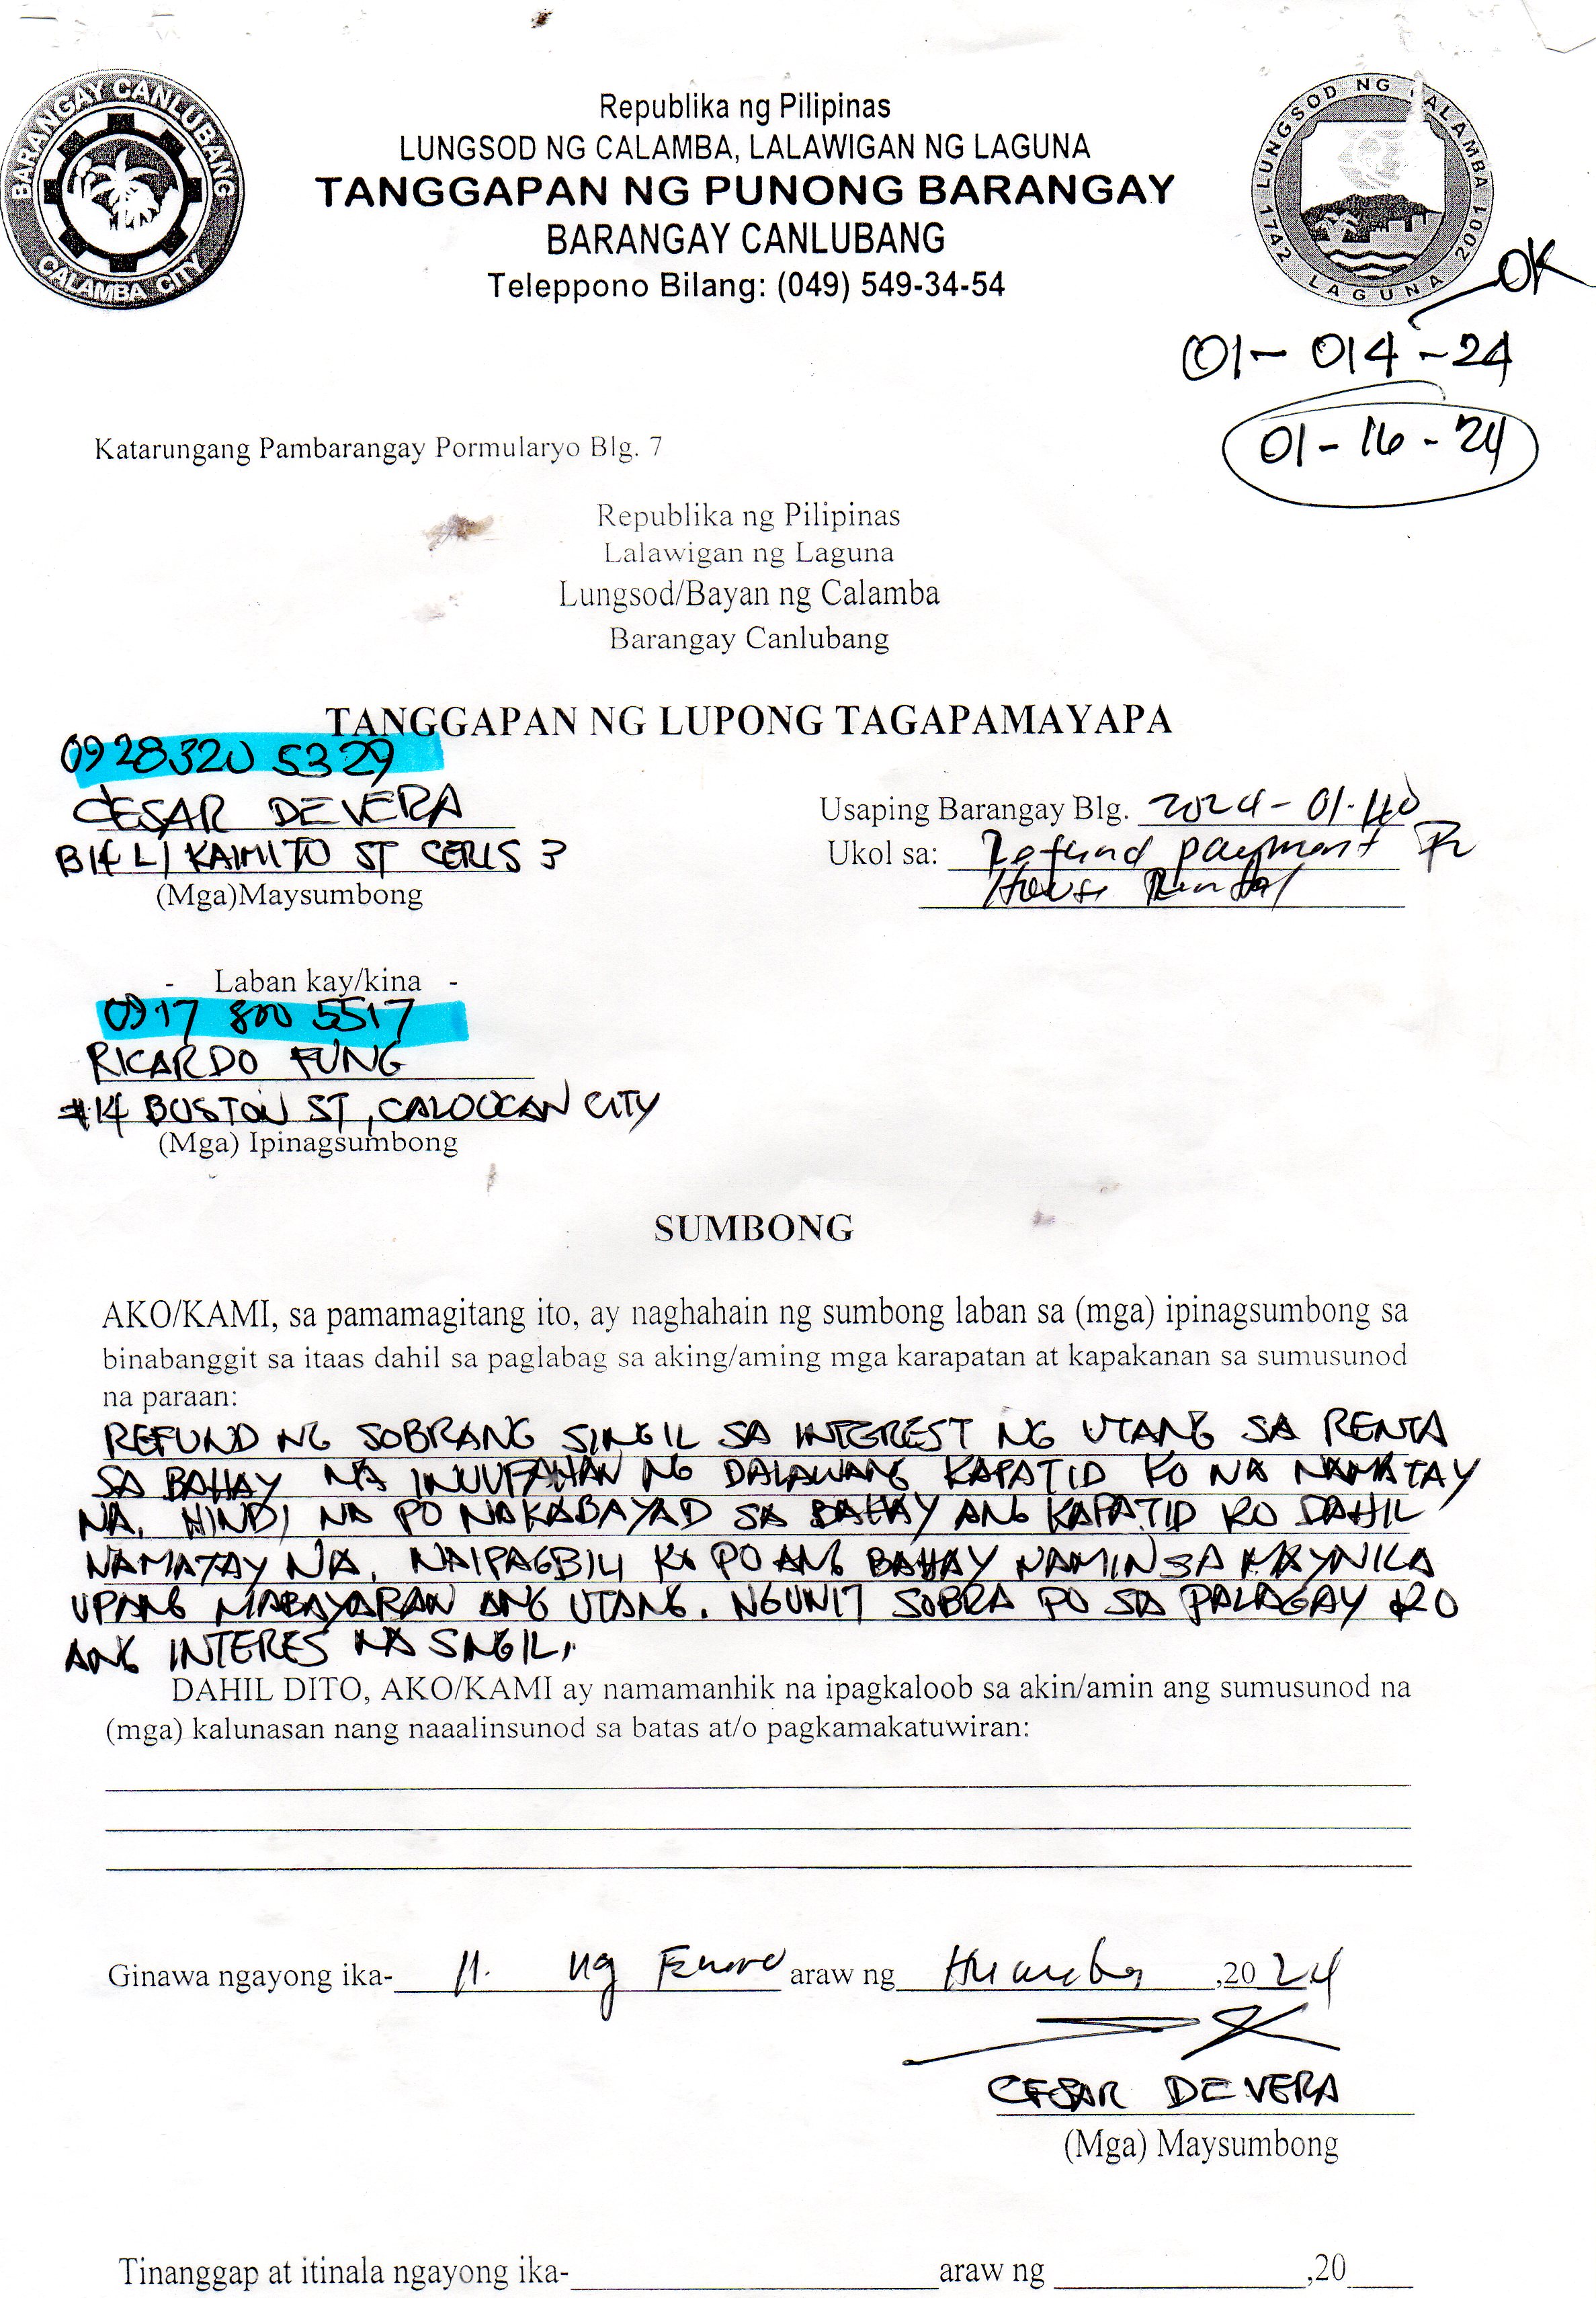 BARANGAY CANLUBANG
CALAMBA CITY
LUNGSOD NG CALAMBA
1742 LAGUNA 2001
Republika ng Pilipinas
LUNGSOD NG CALAMBA, LALAWIGAN NG LAGUNA
TANGGAPAN NG PUNONG BARANGAY
BARANGAY CANLUBANG
Teleppono Bilang: (049) 549-34-54
OK
01-014-24
01-16-24
Katarungang Pambarangay Pormularyo Blg. 7
Republika ng Pilipinas
Lalawigan ng Laguna
Lungsod/Bayan ng Calamba
Barangay Canlubang
TANGGAPAN NG LUPONG TAGAPAMAYAPA
0928320 5329
CESAR DE VERA
B14 L1 KAIMITO ST CERIS 3
(Mga)Maysumbong
Usaping Barangay Blg. 2024-01-
Ukol sa: Refund payment
House Rental
- Laban kay/kina -
0917 800 5517
RICARDO FUNG
#14 BOSTON ST, CALOOCAN CITY
(Mga) Ipinagsumbong
SUMBONG
AKO/KAMI, sa pamamagitang ito, ay naghahain ng sumbong laban sa (mga) ipinagsumbong sa
binabanggit sa itaas dahil sa paglabag sa aking/aming mga karapatan at kapakanan sa sumusunod
na paraan:
REFUND NG SOBRANG SINGIL SA INTEREST NG UTANG SA RENTA
SA BAHAY NA INUUPAHAN NG DALAWANG KAPATID KO NA NAMATAY
NA. HINDI NA PO NAKABAYAD SA BAHAY ANG KAPATID KO DAHIL
NAMATAY NA. NAIPAGBILI KO PO ANG BAHAY NAMIN SA MAYNILA
UPANG MABAYARAN ANG UTANG. NGUNIT SOBRA PO SA PALAGAY KO
ANG INTERES NA SINGIL.
DAHIL DITO, AKO/KAMI ay namamanhik na ipagkaloob sa akin/amin ang sumusunod na
(mga) kalunasan nang naaalinsunod sa batas at/o pagkamakatuwiran:
Ginawa ngayong ika- 11. ng Enero araw ng Huwebes ,20 24
CESAR DE VERA
(Mga) Maysumbong
Tinanggap at itinala ngayong ika- araw ng ,20